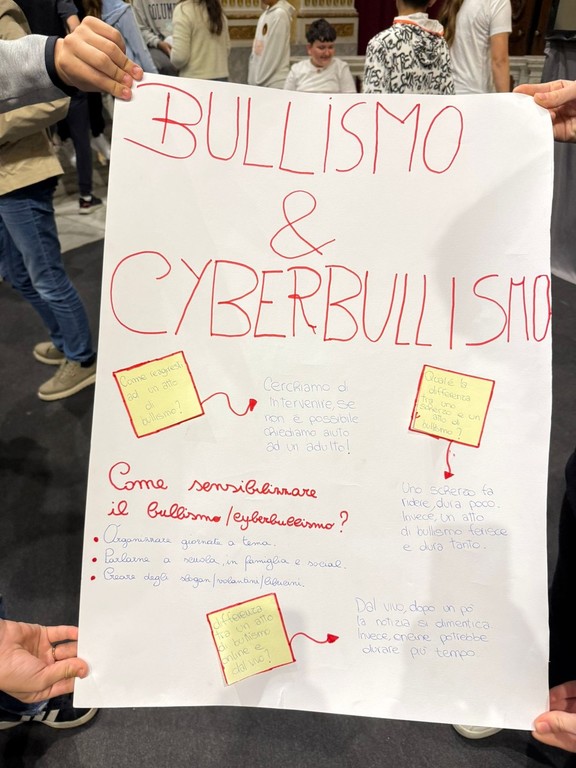 COLUMBIA
BULLISMO
&
CYBERBULLISMO
Come reagresti
ad un atto
di
bullismo?
Cerchiamo di
intervenire, se
non è possibile
chiediamo aiuto
ad un adulto!
Qual è la
differenza
tra uno
scherzo e un
atto di
bullismo?
Uno scherzo fa
ridere, dura poco.
Invece, un atto
di bullismo ferisce
e dura tanto.
Come sensibilizzare
il bullismo/cyberbullismo?
• Organizzare giornate a tema.
• Parlarne a scuola, in famiglia e social.
• Creare degli slogan/volantini/
differenza
tra un atto
di bullismo
online e
dal vivo?
Dal vivo, dopo un pò
la notizia si dimentica
Invece, online potrebbe
durare più tempo